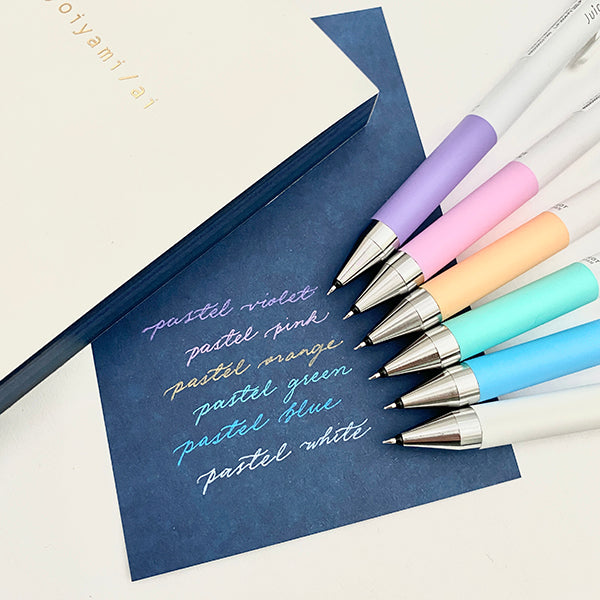 yoiyami/ai
Juic
pastel violet
pastel pink
pastel orange
pastel green
pastel blue
pastel white